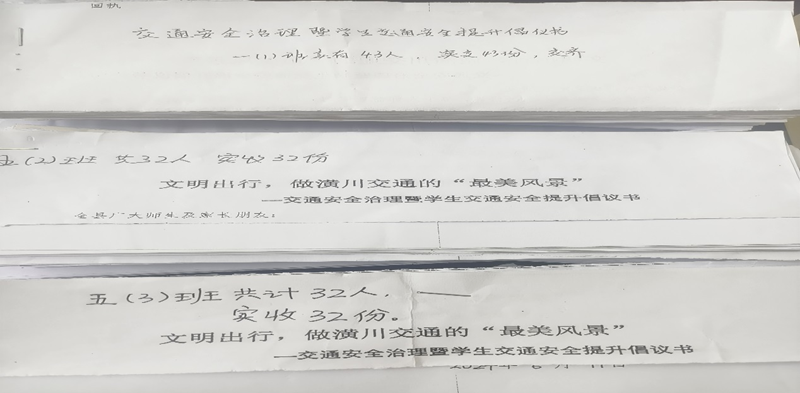 回执
交通安全治理暨学生交通安全提升倡议书
一(1)班共有43人，实交43份，交齐
五(2)班 共32人 实收32份
文明出行，做潢川交通的“最美风景”
—交通安全治理暨学生交通安全提升倡议书
全县广大师生及家长朋友：
五(3)班 共计32人，
实收32份。
文明出行，做潢川交通的“最美风景”
—交通安全治理暨学生交通安全提升倡议书